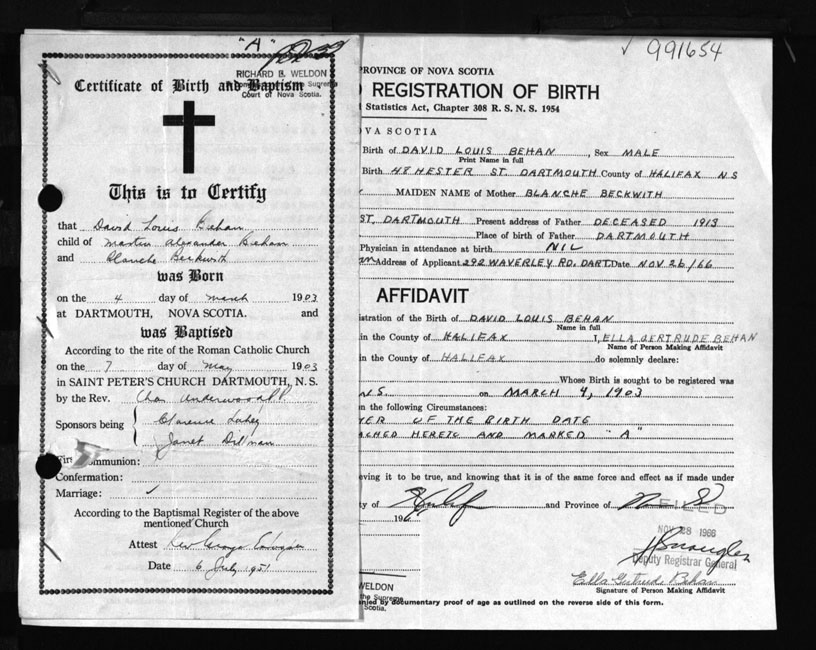 "A"
RICHARD B. WELDON
Certificate of Birth and Baptism
the Supreme
Court of Nova Scotia.
This is to Certify
that David Louis Behan
child of Martin Alexander Behan
and Blanche Beckwith
was Born
on the 4 day of March 1903
at DARTMOUTH, NOVA SCOTIA. and
was Baptised
According to the rite of the Roman Catholic Church
on the 7 day of May 1903
in SAINT PETER'S CHURCH DARTMOUTH, N. S.
by the Rev. Chas Underwood
Sponsors being Clarence
Janet Dillman
Communion:
Confermation:
Marriage:
According to the Baptismal Register of the above
mentioned Church
Attest Rev George
Date 6 July 1951
√ 991654
PROVINCE OF NOVA SCOTIA
REGISTRATION OF BIRTH
Statistics Act, Chapter 308 R. S. N. S. 1954
OVA SCOTIA
Birth of DAVID LOUIS BEHAN, Sex MALE
Print Name in full
Birth 48 HESTER ST. DARTMOUTH County of HALIFAX N S
MAIDEN NAME of Mother BLANCHE BECKWITH
ST. DARTMOUTH Present address of Father DECEASED 1913
Place of birth of Father DARTMOUTH
Physician in attendance at birth NIL
Address of Applicant 292 WAVERLEY RD, DART. Date NOV 26/66
AFFIDAVIT
istration of the Birth of DAVID LOUIS BEHAN
Name in full
in the County of HALIFAX I, ELLA GERTRUDE BEHAN
Name of Person Making Affidavit
in the County of HALIFAX do solemnly declare:
Whose Birth is sought to be registered was
N.S. on MARCH 4, 1903
n the following Circumstances:
HER OF THE BIRTH DATE
ACHED HERETO AND MARKED "A"
eving it to be true, and knowing that it is of the same force and effect as if made under
ty of and Province of
FILED
196
NOV 28 1966
Deputy Registrar General
Ella Gertrude Behan
Signature of Person Making Affidavit
WELDON
the Supreme
Scotia.
nied by documentary proof of age as outlined on the reverse side of this form.